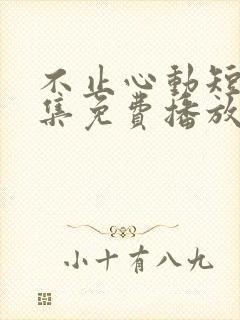 不止心動短
集免費播放
小十有八九